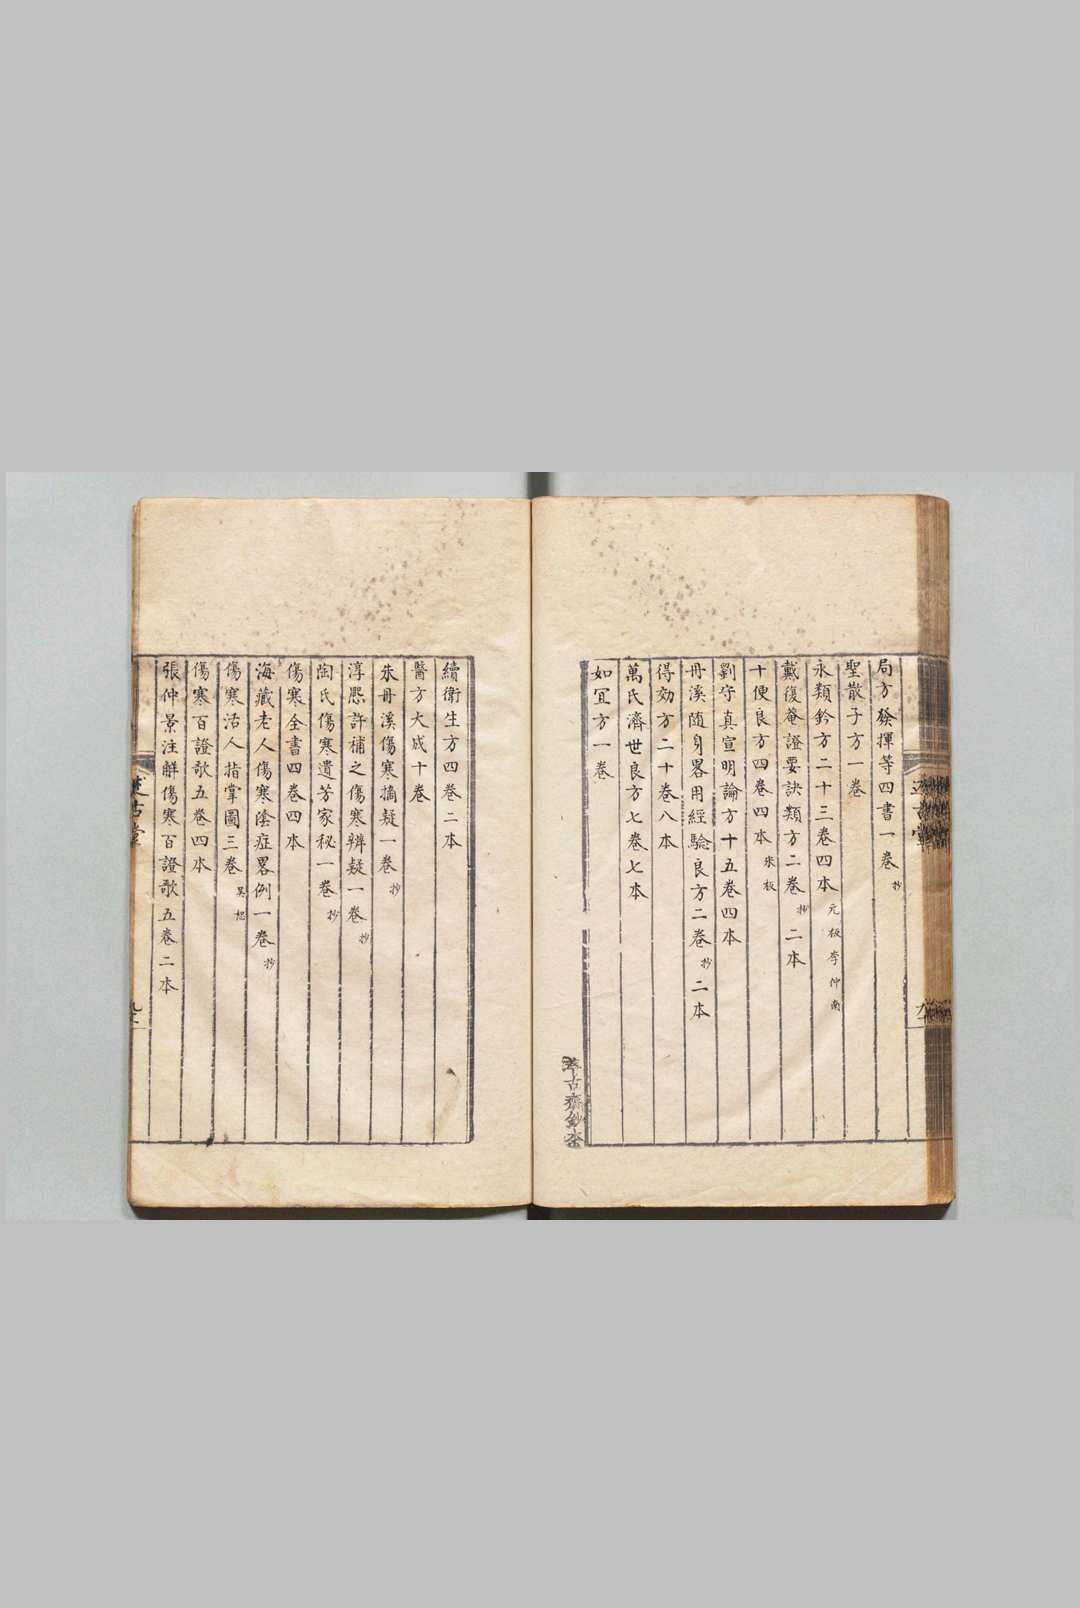 局方發揮等四書一卷抄
聖散子方一卷
永類鈐方二十三卷四本元板李仲南
戴復菴證要訣類方二卷抄二本
十便良方四卷四本宋板
劉守真宣明論方十五卷四本
丹溪随身畧用經驗良方二卷抄二本
得効方二十卷八本
萬氏濟世良方七卷七本
如宜方一卷
古齋鈔
續衛生方四卷二本
醫方大成十卷
朱丹溪傷寒摘疑一卷抄
淳熙許補之傷寒辨疑一卷抄
陶氏傷寒遺芳家秘一卷抄
傷寒全書四卷四本
海藏老人傷寒陰症畧例一卷抄
傷寒活人指掌圖三卷吴恕
傷寒百證歌五卷四本
張仲景注解傷寒百證歌五卷二本
述古堂